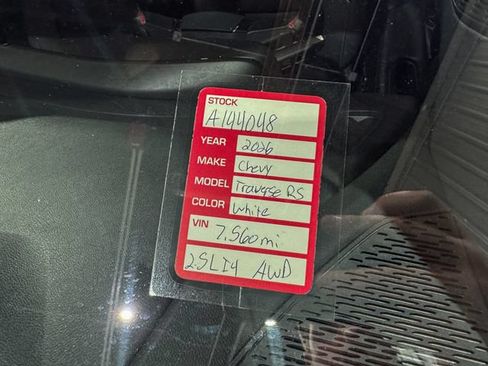 STOCK
A144048
YEAR 2026
MAKE Chevy
MODEL Traverse RS
COLOR White
VIN 7,560 mi
2.5L I4 AWD